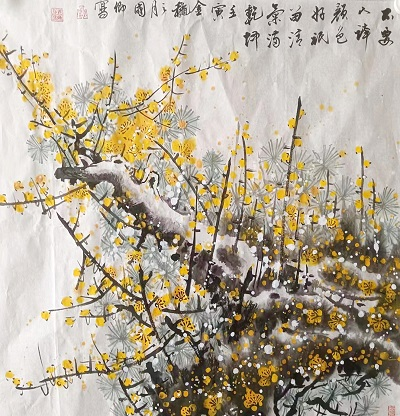 不要
人誇
顏色
好祇
留清
氣滿
乾坤
壬
寅
金
穗
之
月
國
寫